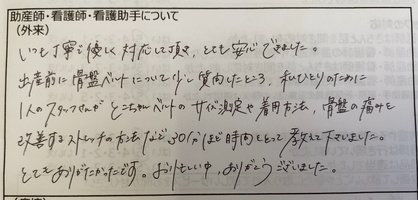 助産師・看護師・看護助手について
(外来)
いつも丁寧で優しく対応して頂き、とても安心できました。
出産前に骨盤ベルトについて少し質問したところ、私ひとりのために
1人のスタッフさんがとこちゃんベルトのサイズ測定や着用方法、骨盤の痛みを
改善するストレッチの方法など30分ほど時間をとって教えて下さいました。
とてもありがたかったです。お忙しい中、ありがとうございました。